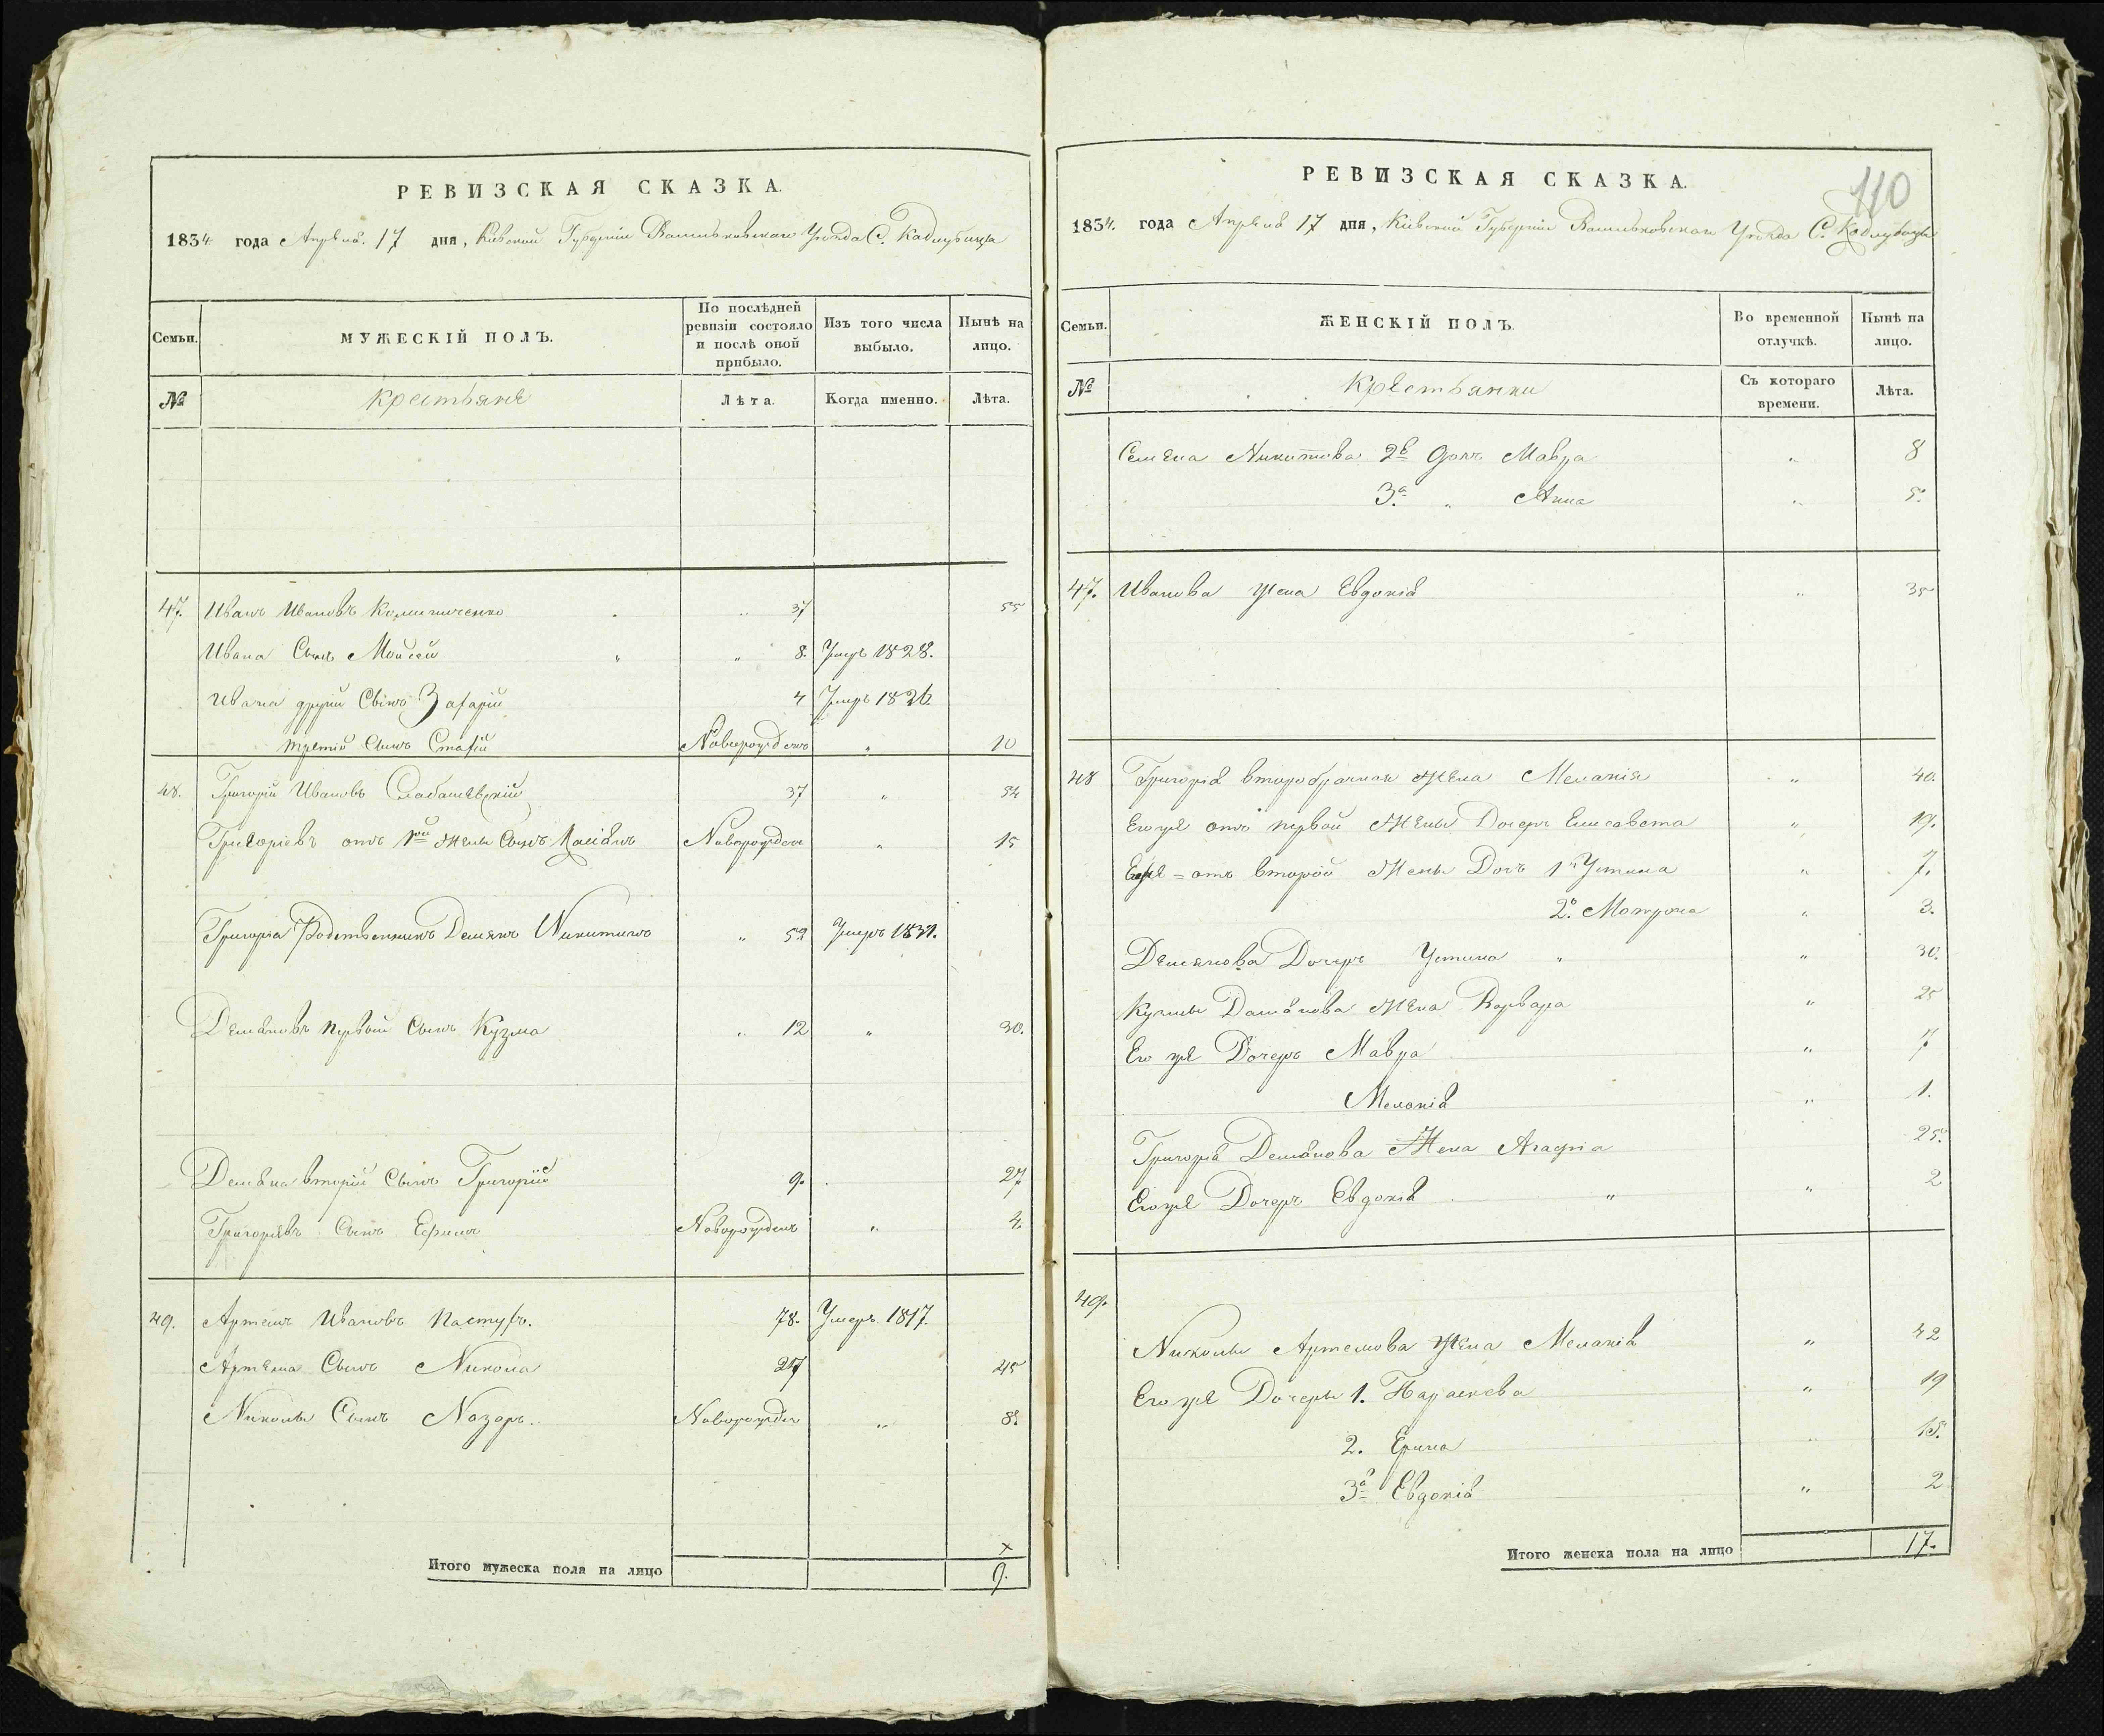 РЕВИЗСКАЯ СКАЗКА.
1834 года Апрѣля 17 дня, Кіевской Губерніи Васильковскаго Уезда С. Кадлубица
Семьи. МУЖЕСКІЙ ПОЛЪ. По послѣдней ревизіи состояло и послѣ оной прибыло. Изъ того числа выбыло. Нынѣ на лицо.
№ Крестьяне Лѣта. Когда именно. Лѣта.
47. Иванъ Ивановъ 37 55
Ивана Сынъ Мойсей " 8. Умеръ 1828.
Ивана другій Сынъ Захарій 4 Умеръ 1826.
третій Сынъ Стафій Новорожденъ " 10
48. Григорій Ивановъ 37 " 54
Григоріевъ отъ 1ой Жены Сынъ Новорожден " 15
Григорія Родственникъ Демянъ Никитинъ " 52 Умеръ 1831.
Демяновъ первый Сынъ Кузма " 12 " 30.
Демяна вторій Сынъ Григорій 9. 27
Григоріевъ Сынъ Ефимъ Новорожденъ " 4.
49. Артемъ Ивановъ Пастухъ. 78. Умеръ 1817.
Артема Сынъ Никола 27 45
Николы Сынъ Назаръ. Новорожден " 8.
Итого мужеска пола на лицо 9.
110
РЕВИЗСКАЯ СКАЗКА.
1834. года Апрѣля 17 дня, Кіевской Губерніи Васильковскаго Уезда С. Кадлубица
Семьи. ЖЕНСКІЙ ПОЛЪ. Во временной отлучкѣ. Нынѣ на лицо.
№ Крестьянки Съ котораго времени. Лѣта.
Семена Никитова 2я Доч Мавра " 8
3я " Анна " 5.
47. Иванова жена Евдокія " 35
48 Григорія второбрачная Жена Меланія " 40.
Егоже отъ первой Жены Дочерь Елисавета " 19.
Егоже = отъ второй Жены Доч 1я Устина " 7.
2я Мотрона " 3.
Демянова Дочерь Устина " " 30.
Кузмы Демянова Жена Варвара " 25
Его же Дочерь Мавра " 7
Меланія " 1.
Григорія Демянова Жена Агафія 25.
Егоже Дочерь Евдокія " " 2
49.
Николы Артемова Жена Меланія " 42
Егоже Дочеры 1. Параскева " 19
2. Ерина 15.
3я Евдокія " 2
Итого женска пола на лицо 17.